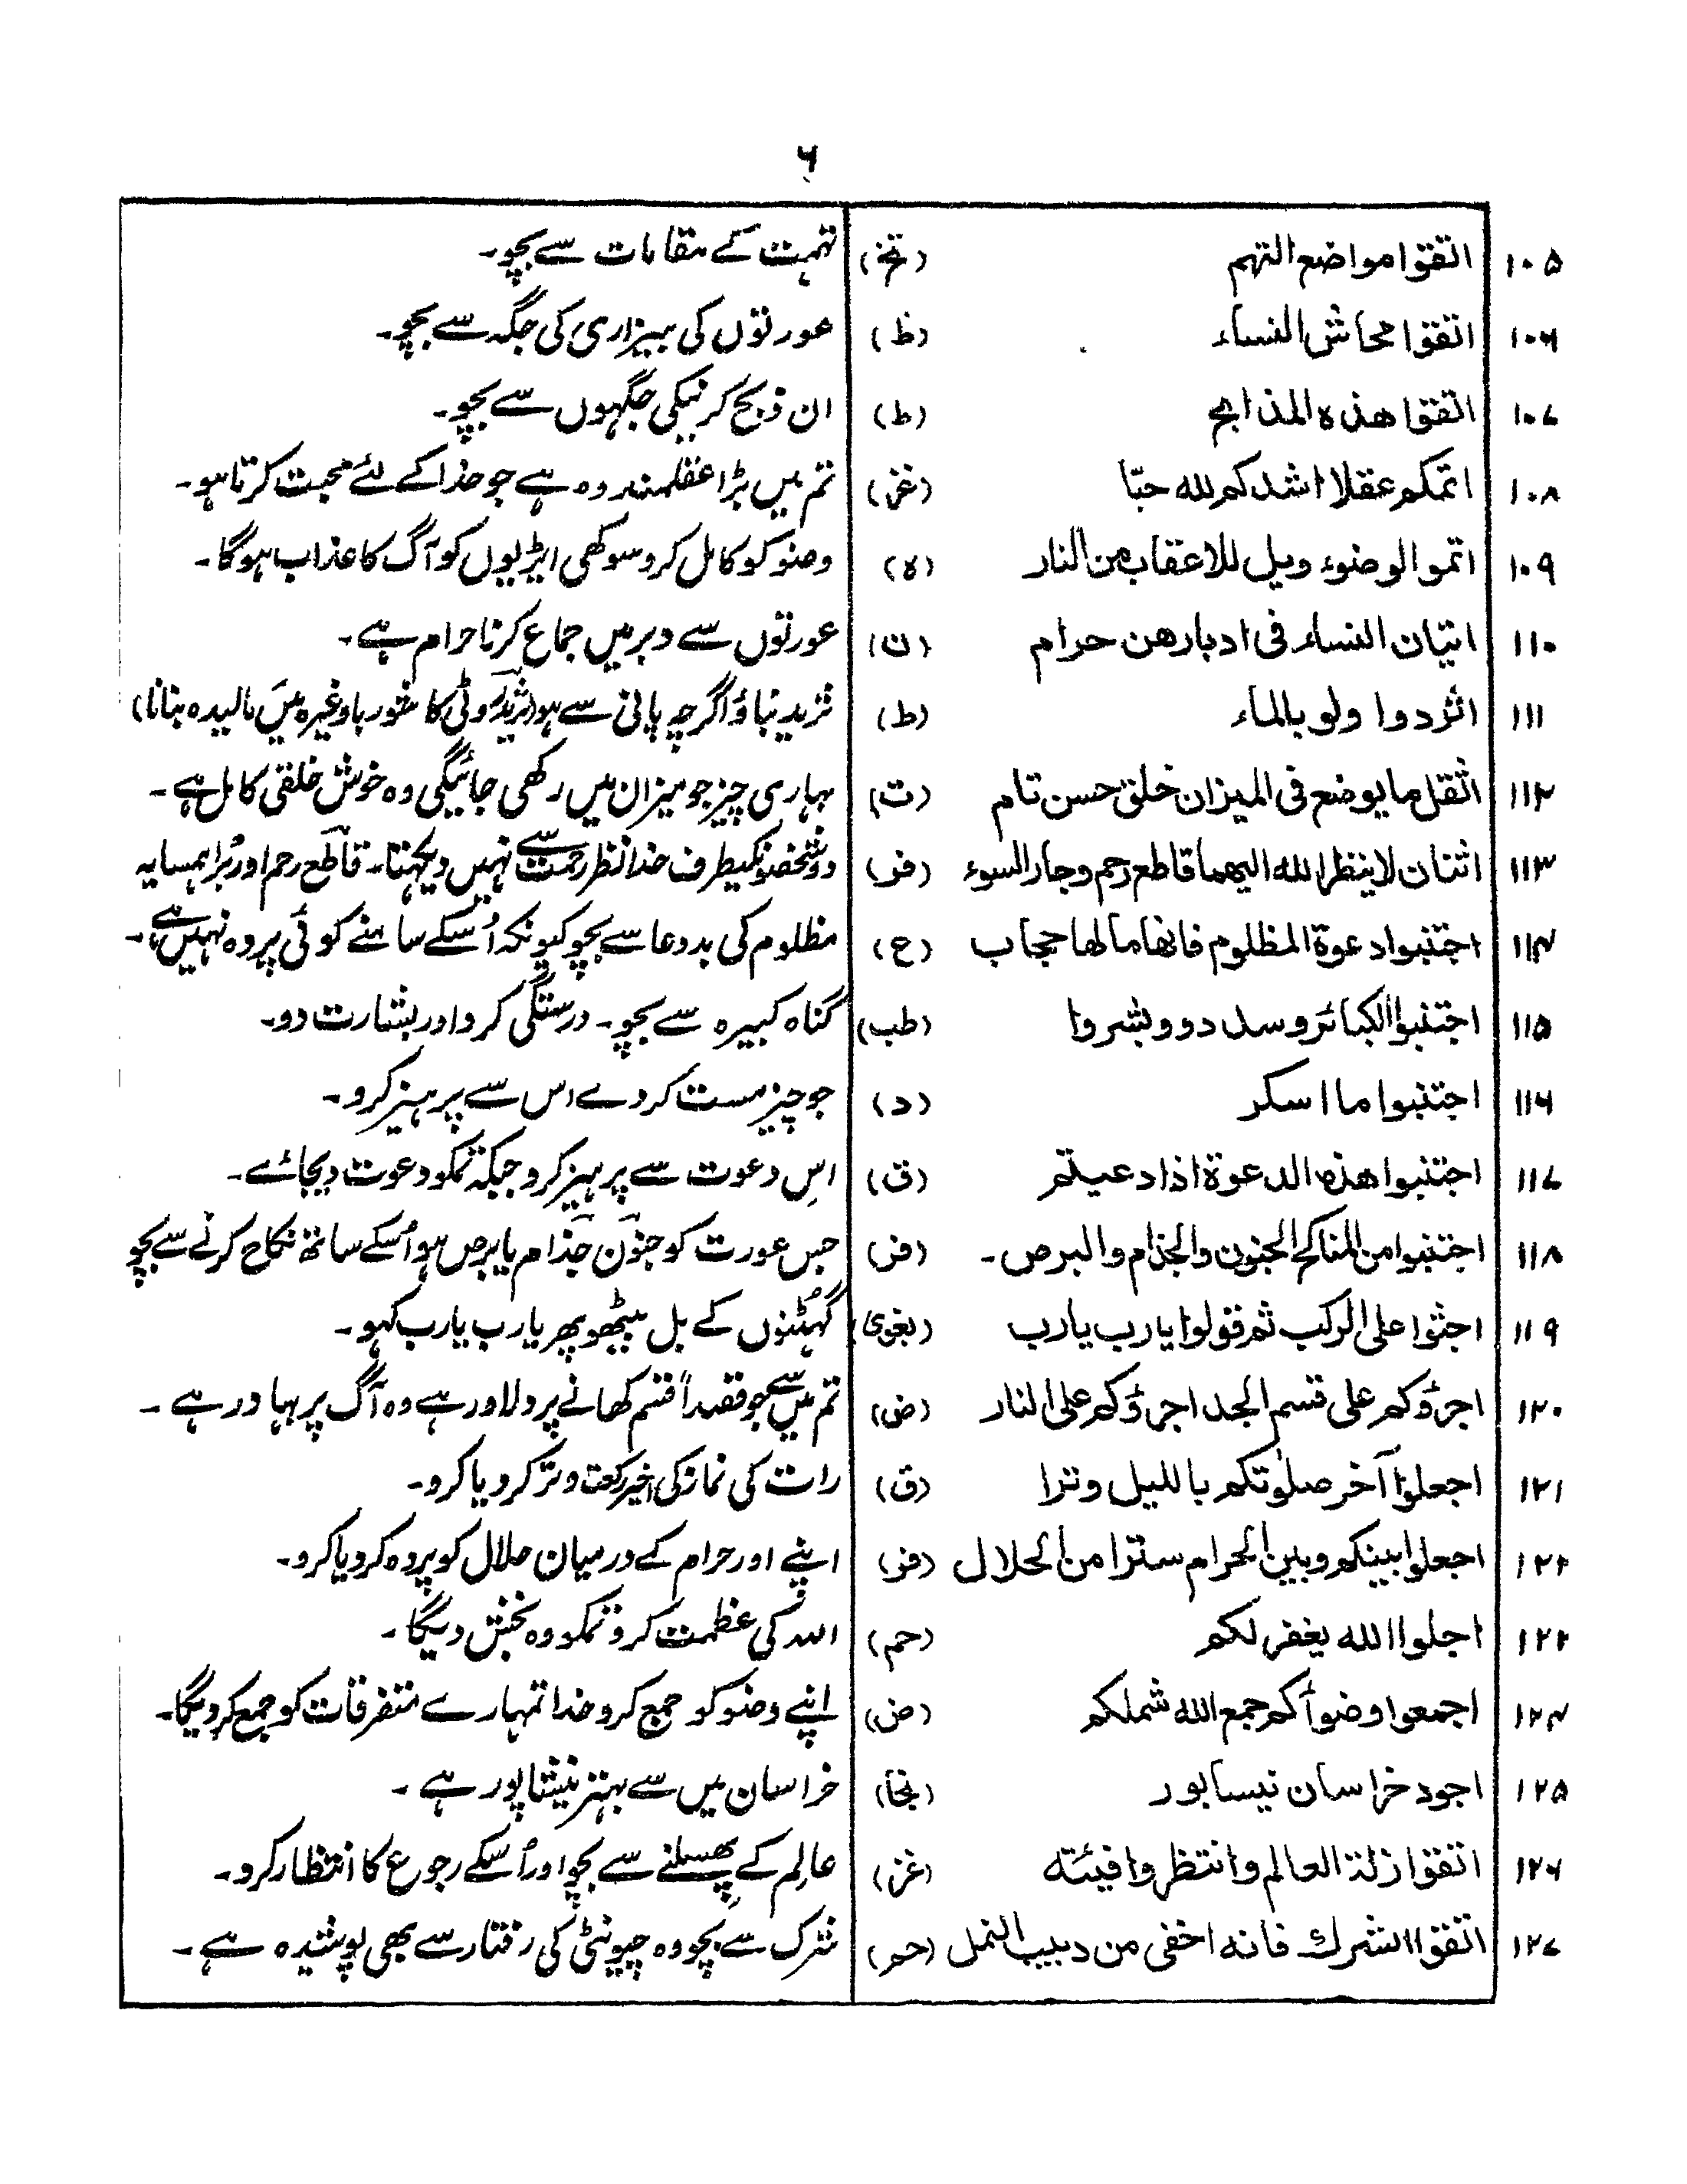 ۶
۱۰۵ اتقوا مواضع التهم (تخ) تہمت کے مقامات سے بچو۔
۱۰۶ اتقوا محاش النساء (ظ) عورتوں کی بیزاری کی جگہ سے بچو۔
۱۰۷ اتقوا هذه المذابح (ط) ان ذبح کرنیکی جگہوں سے بچو۔
۱۰۸ اتمكم عقلا اشدكم لله حبّا (غز) تم میں بڑا عقلمند وہ ہے جو خدا کے لئے محبت کرتا ہو۔
۱۰۹ اتموا الوضوء ويل للاعقاب من النار (ہ) وضو کو کامل کرو سوکھی ایڑیوں کو آگ کا عذاب ہوگا۔
۱۱۰ اتيان النساء فى ادبارهن حرام (ن) عورتوں سے دبر میں جماع کرنا حرام ہے۔
۱۱۱ اثردوا ولو بالماء (ط) ثرید بناؤ اگرچہ پانی سے ہو (ثرید روٹی کا شوربا وغیرہ میں مالیدہ بنانا)
۱۱۲ اثقل ما يوضع فى الميزان خلق حسن تام (ت) بہاری چیز جو میزان میں رکھی جائیگی وہ خوش خلقی کامل ہے۔
۱۱۳ اثنان لا ينظر الله اليهما قاطع رحم وجار السوء (فر) دو شخصونکیطرف خدا نظر رحمت سے نہیں دیکہتا۔ قاطع رحم اور بُرا ہمسایہ
۱۱۴ اجتنبوا دعوة المظلوم فانها مالها حجاب (ع) مظلوم کی بددعا سے بچو کیونکہ اُسکے سامنے کوئی پردہ نہیں ہے۔
۱۱۵ اجتنبوا الكبائر وسددوا وبشروا (طب) گناہ کبیرہ سے بچو۔ درستگی کرو اور بشارت دو۔
۱۱۶ اجتنبوا ما اسكر (د) جو چیز مست کردے اس سے پرہیز کرو۔
۱۱۷ اجتنبوا هذه الدعوة اذا دعيتم (ق) اسِ دعوت سے پرہیز کرو جبکہ تمکو دعوت دیجائے۔
۱۱۸ اجتنبوا من المناكح الجنون والجذام والبرص۔ (فر) جس عورت کو جنون جذام یا برص ہو اُسکے ساتھ نکاح کرنے سے بچو
۱۱۹ اجثوا على الركب ثم قولوا يارب يارب (بغوی) گہٹنوں کے بل بیٹھو پھر یارب یارب کہو۔
۱۲۰ اجرؤكم على قسم الجد اجرؤكم على النار (ض) تم میں سے جو قصداً قسم کھانے پر دلاور ہے وہ آگ پر بہادر ہے۔
۱۲۱ اجعلوا آخر صلوتكم بالليل وترا (ق) رات کی نماز کی اخیر رکعت وتر کردیا کرو۔
۱۲۲ اجعلوا بينكم وبين الحرام سترا من الحلال (فر) اپنے اور حرام کے درمیان حلال کو پردہ کردیا کرو۔
۱۲۳ اجلوا الله يغفر لكم (حم) اللہ کی عظمت کرو تمکو وہ بخش دیگا۔
۱۲۴ اجمعوا وضوأكم جمع الله شملكم (ض) اپنے وضو کو جمع کرو خدا تمہارے متفرقات کو جمع کردیگا۔
۱۲۵ اجود خراسان نيسابور (نجا) خراسان میں سے بہتر نیشاپور ہے۔
۱۲۶ اتقوا زلة العالم وانتظروا فيئته (غز) عالِم کے پھسلنے سے بچو اور اُسکے رجوع کا انتظار کرو۔
۱۲۷ اتقوا الشرك فانه اخفى من دبيب النمل (حم) شرک سے بچو وہ چیونٹی کی رفتار سے بھی پوشیدہ ہے۔